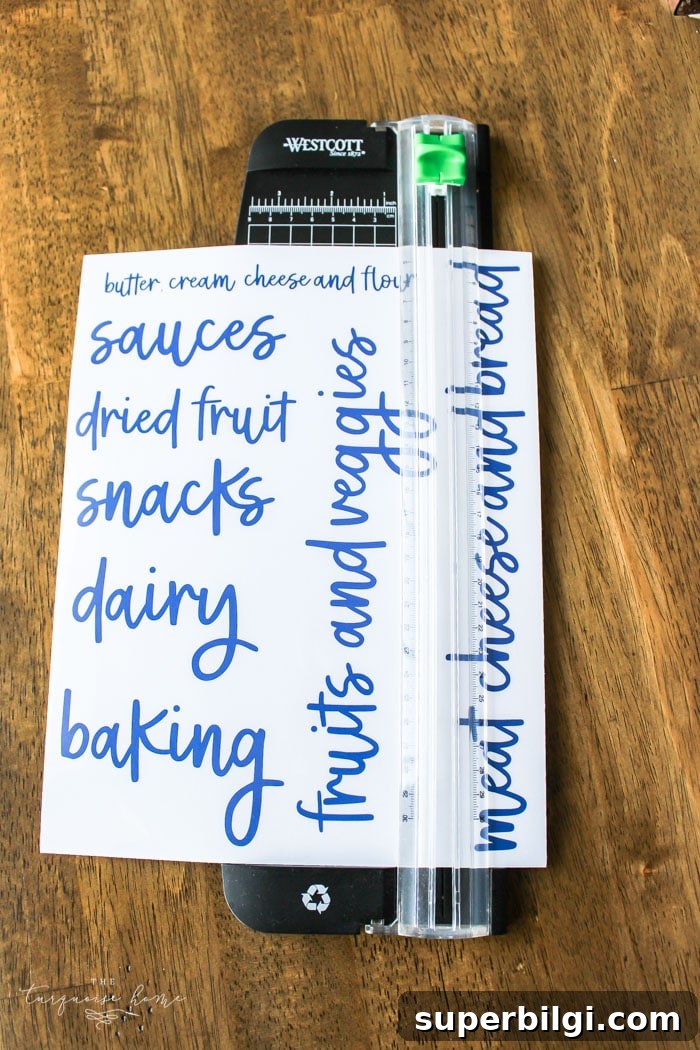 WESTCOTT
Since 1872
butter, cream cheese and flour
sauces
dried fruit
snacks
dairy
baking
fruits and veggies
meat cheese and bread
THE
turquoise home
superbilgi.com